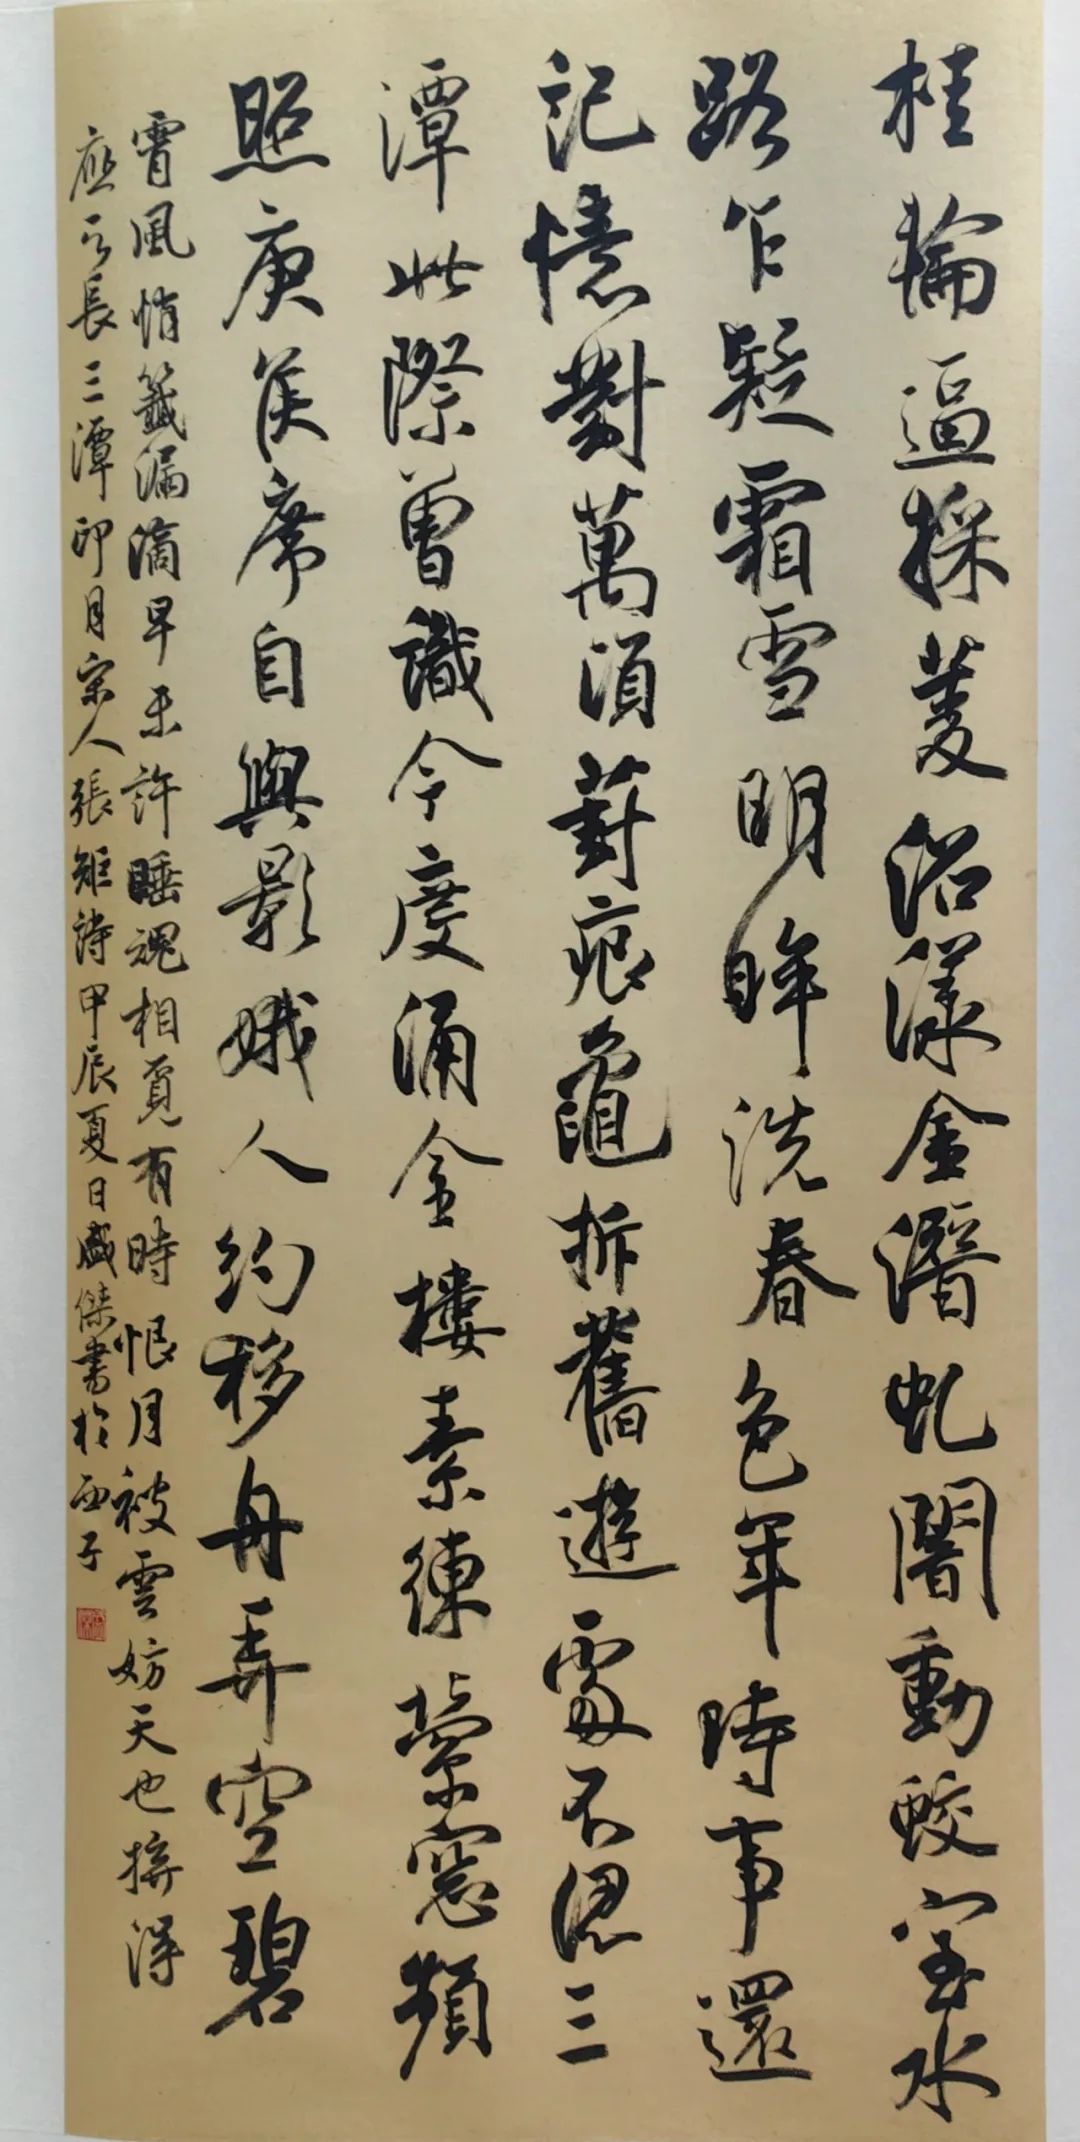 桂輪逼採菱沿漾金潛虬闇動鮫室水
路乍疑霜雪明眸洗春色年時事還
記憶對萬頃葑痕龜拆舊遊處不認三
潭此際曾識今度涌金樓素練縈窓頻
照庾侯席自與影娥人約移舟弄空碧
宵風悄籤漏滴早未許睡魂相覓有時恨月被雲妨天也拚得
應天長三潭印月宋人張矩詩甲辰夏日盛傑書於西子